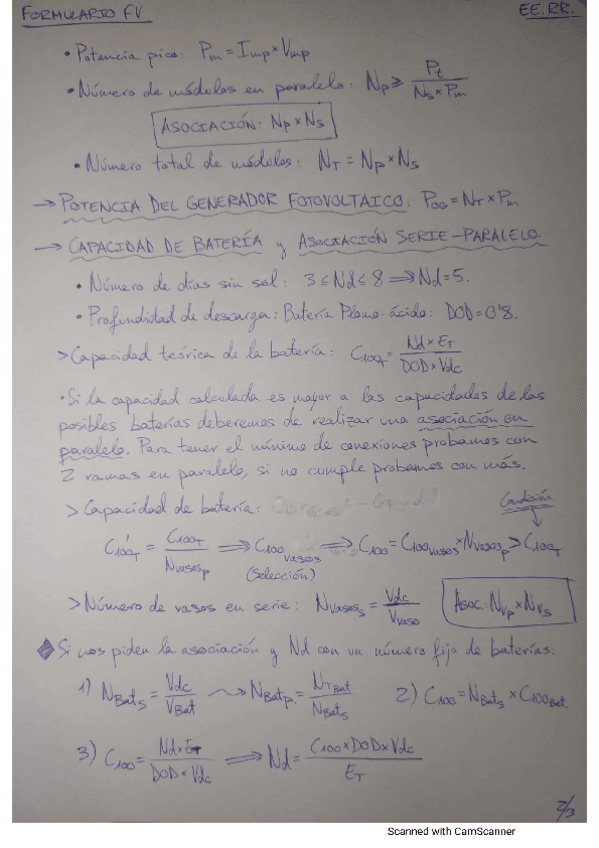 FORMULARIO FV
EE.RR.
• Potencia pico: Pm = Imp × Vmp
• Número de módulos en paralelo: Np ≥ Pt / (Ns × Pm)
ASOCIACIÓN: Np × Ns
• Número total de módulos: NT = Np × Ns
→ POTENCIA DEL GENERADOR FOTOVOLTAICO: POG = NT × Pm
→ CAPACIDAD DE BATERÍA y ASOCIACIÓN SERIE-PARALELO.
• Número de días sin sol: 3 ≤ Nd ≤ 8 ⟹ Nd = 5.
• Profundidad de descarga: Batería Plomo-ácido: DOD = 0'8.
> Capacidad teórica de la batería: C100T = (Nd × ET) / (DOD × Vdc)
• Si la capacidad calculada es mayor a las capacidades de las
posibles baterías deberemos de realizar una asociación en
paralelo. Para tener el mínimo de conexiones probamos con
2 ramas en paralelo, si no cumple probamos con más.
> Capacidad de batería:
Condición
C'100T = C100T / Nvasosp ⟹ C100vasos (Selección) ⟹ C100 = C100vasos × Nvasosp > C100T
> Número de vasos en serie: Nvasoss = Vdc / Vvaso
Asoc. Nvp × Nvs
◆ Si nos piden la asociación y Nd con un número fijo de baterías:
1) NBats = Vdc / VBat ⇝ NBatp. = NTBat / NBats
2) C100 = NBats × C100Bat.
3) C100 = (Nd × ET) / (DOD × Vdc) ⟹ Nd = (C100 × DOD × Vdc) / ET
2/3
Scanned with CamScanner